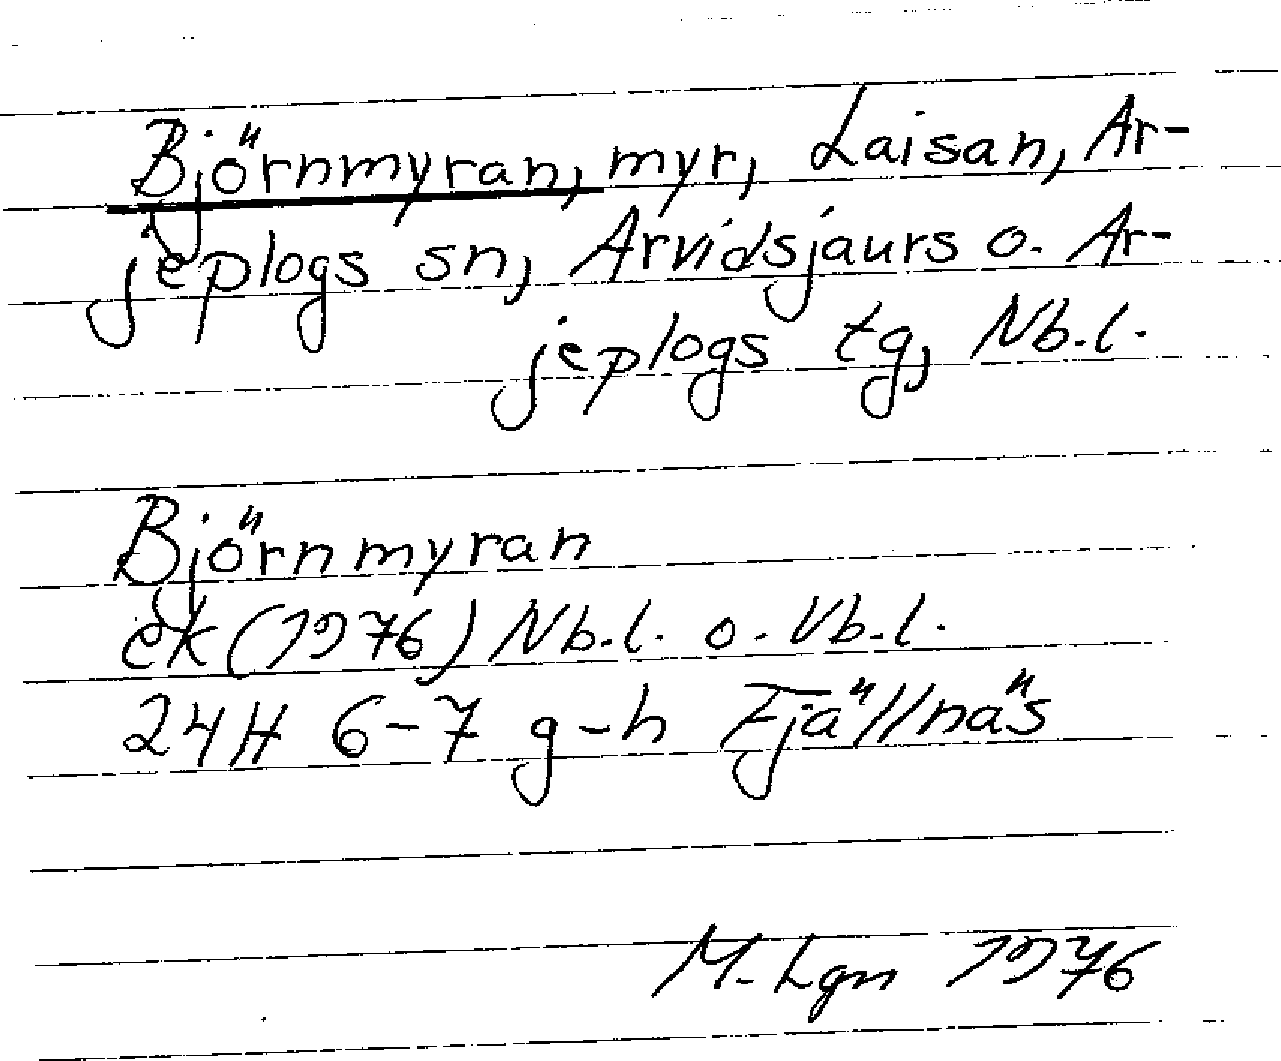 Björnmyran, myr, Laisan, Ar-
jeplogs sn, Arvidsjaurs o. Ar-
jeplogs tg, Nb.l.
Björnmyran
ek (1976) Nb.l. o. Vb.l.
24H 6-7 g-h Fjällnäs
M. Lgn 1976